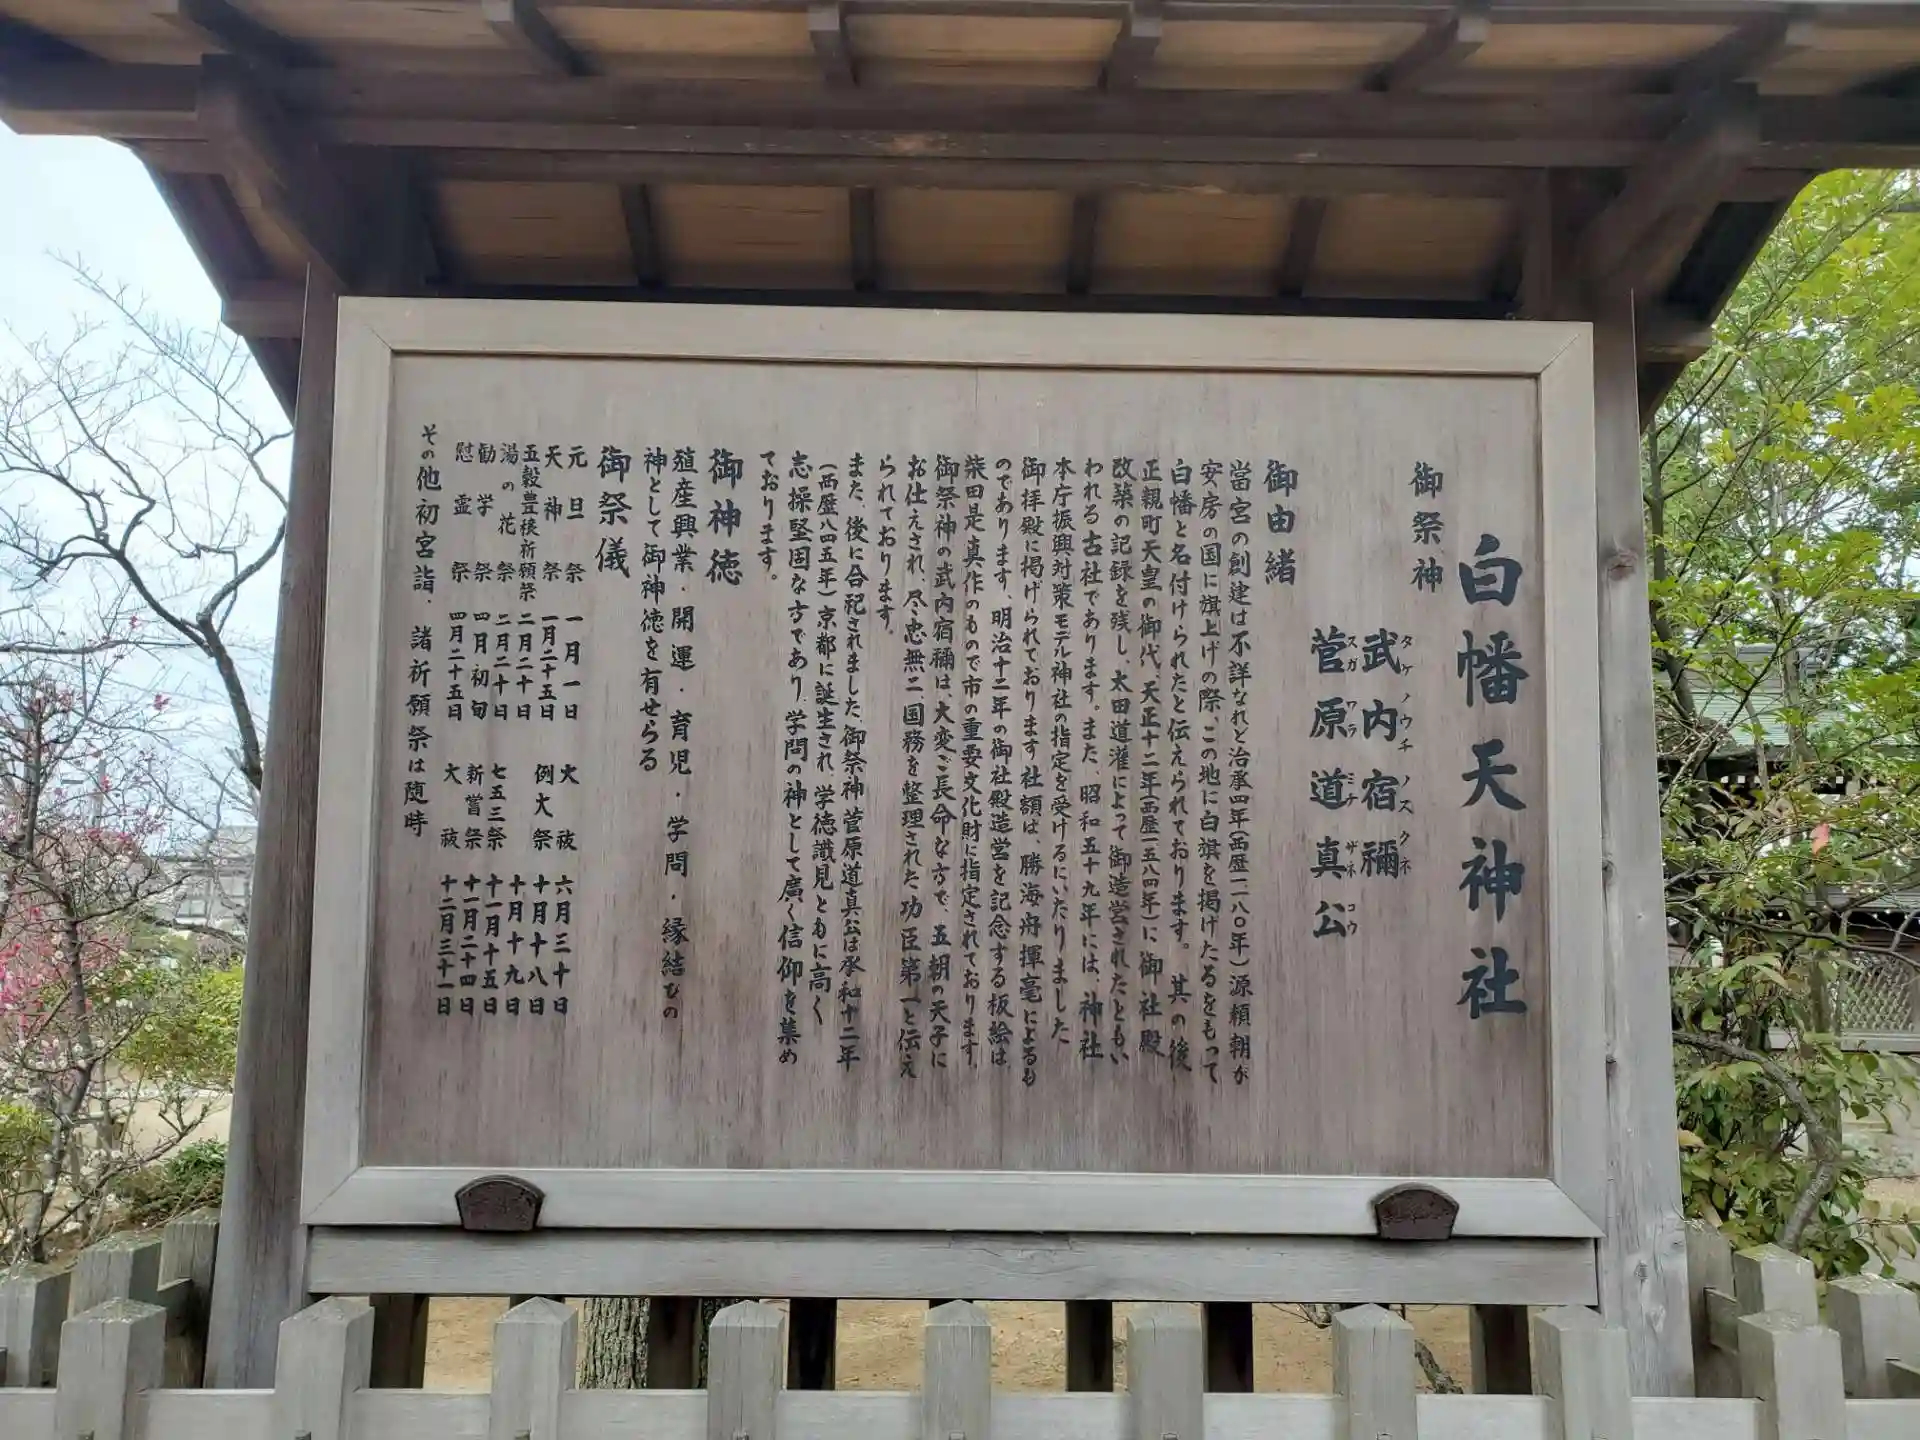 白幡天神社
御祭神
武内宿禰
タケノウチノスクネ
菅原道真公
スガワラミチザネコウ
御由緒
當宮の創建は不詳なれど治承四年(西歴一一八〇年)源頼朝が
安房の国に旗上げの際、この地に白旗を掲げたるをもって
白幡と名付けられたと伝えられております。其の後
正親町天皇の御代、天正十二年(西歴一五八四年)に御社殿
改築の記録を残し、太田道灌によって御造営されたともい
われる古社であります。また、昭和五十九年には、神社
本庁振興対策モデル神社の指定を受けるにいたりました
御拝殿に掲げられております社額は、勝海舟揮毫によるも
のであります、明治十二年の御社殿造営を記念する板絵は、
柴田是真作のもので市の重要文化財に指定されております。
御祭神の武内宿禰は、大変ご長命な方で、五朝の天子に
お仕えされ、尽忠無二、国務を整理された功臣第一と伝え
られております。
また、後に合祀されました、御祭神菅原道真公は承和十二年
(西歴八四五年)京都に誕生され、学徳識見ともに高く
志操堅固な方であり、学問の神として廣く信仰を集め
ております。
御神徳
殖産興業・開運・育児・学問・縁結びの
神として御神徳を有せらる
御祭儀
元旦祭 一月一日 大祓 六月三十日
天神祭 一月二十五日 例大祭 十月十八日
五穀豊穣祈願祭 二月二十日 十月十九日
湯の花祭 二月二十日 七五三祭 十一月十五日
勧学祭 四月初旬 新嘗祭 十一月二十四日
慰霊祭 四月二十五日 大祓 十二月三十一日
その他初宮詣、諸祈願祭は随時